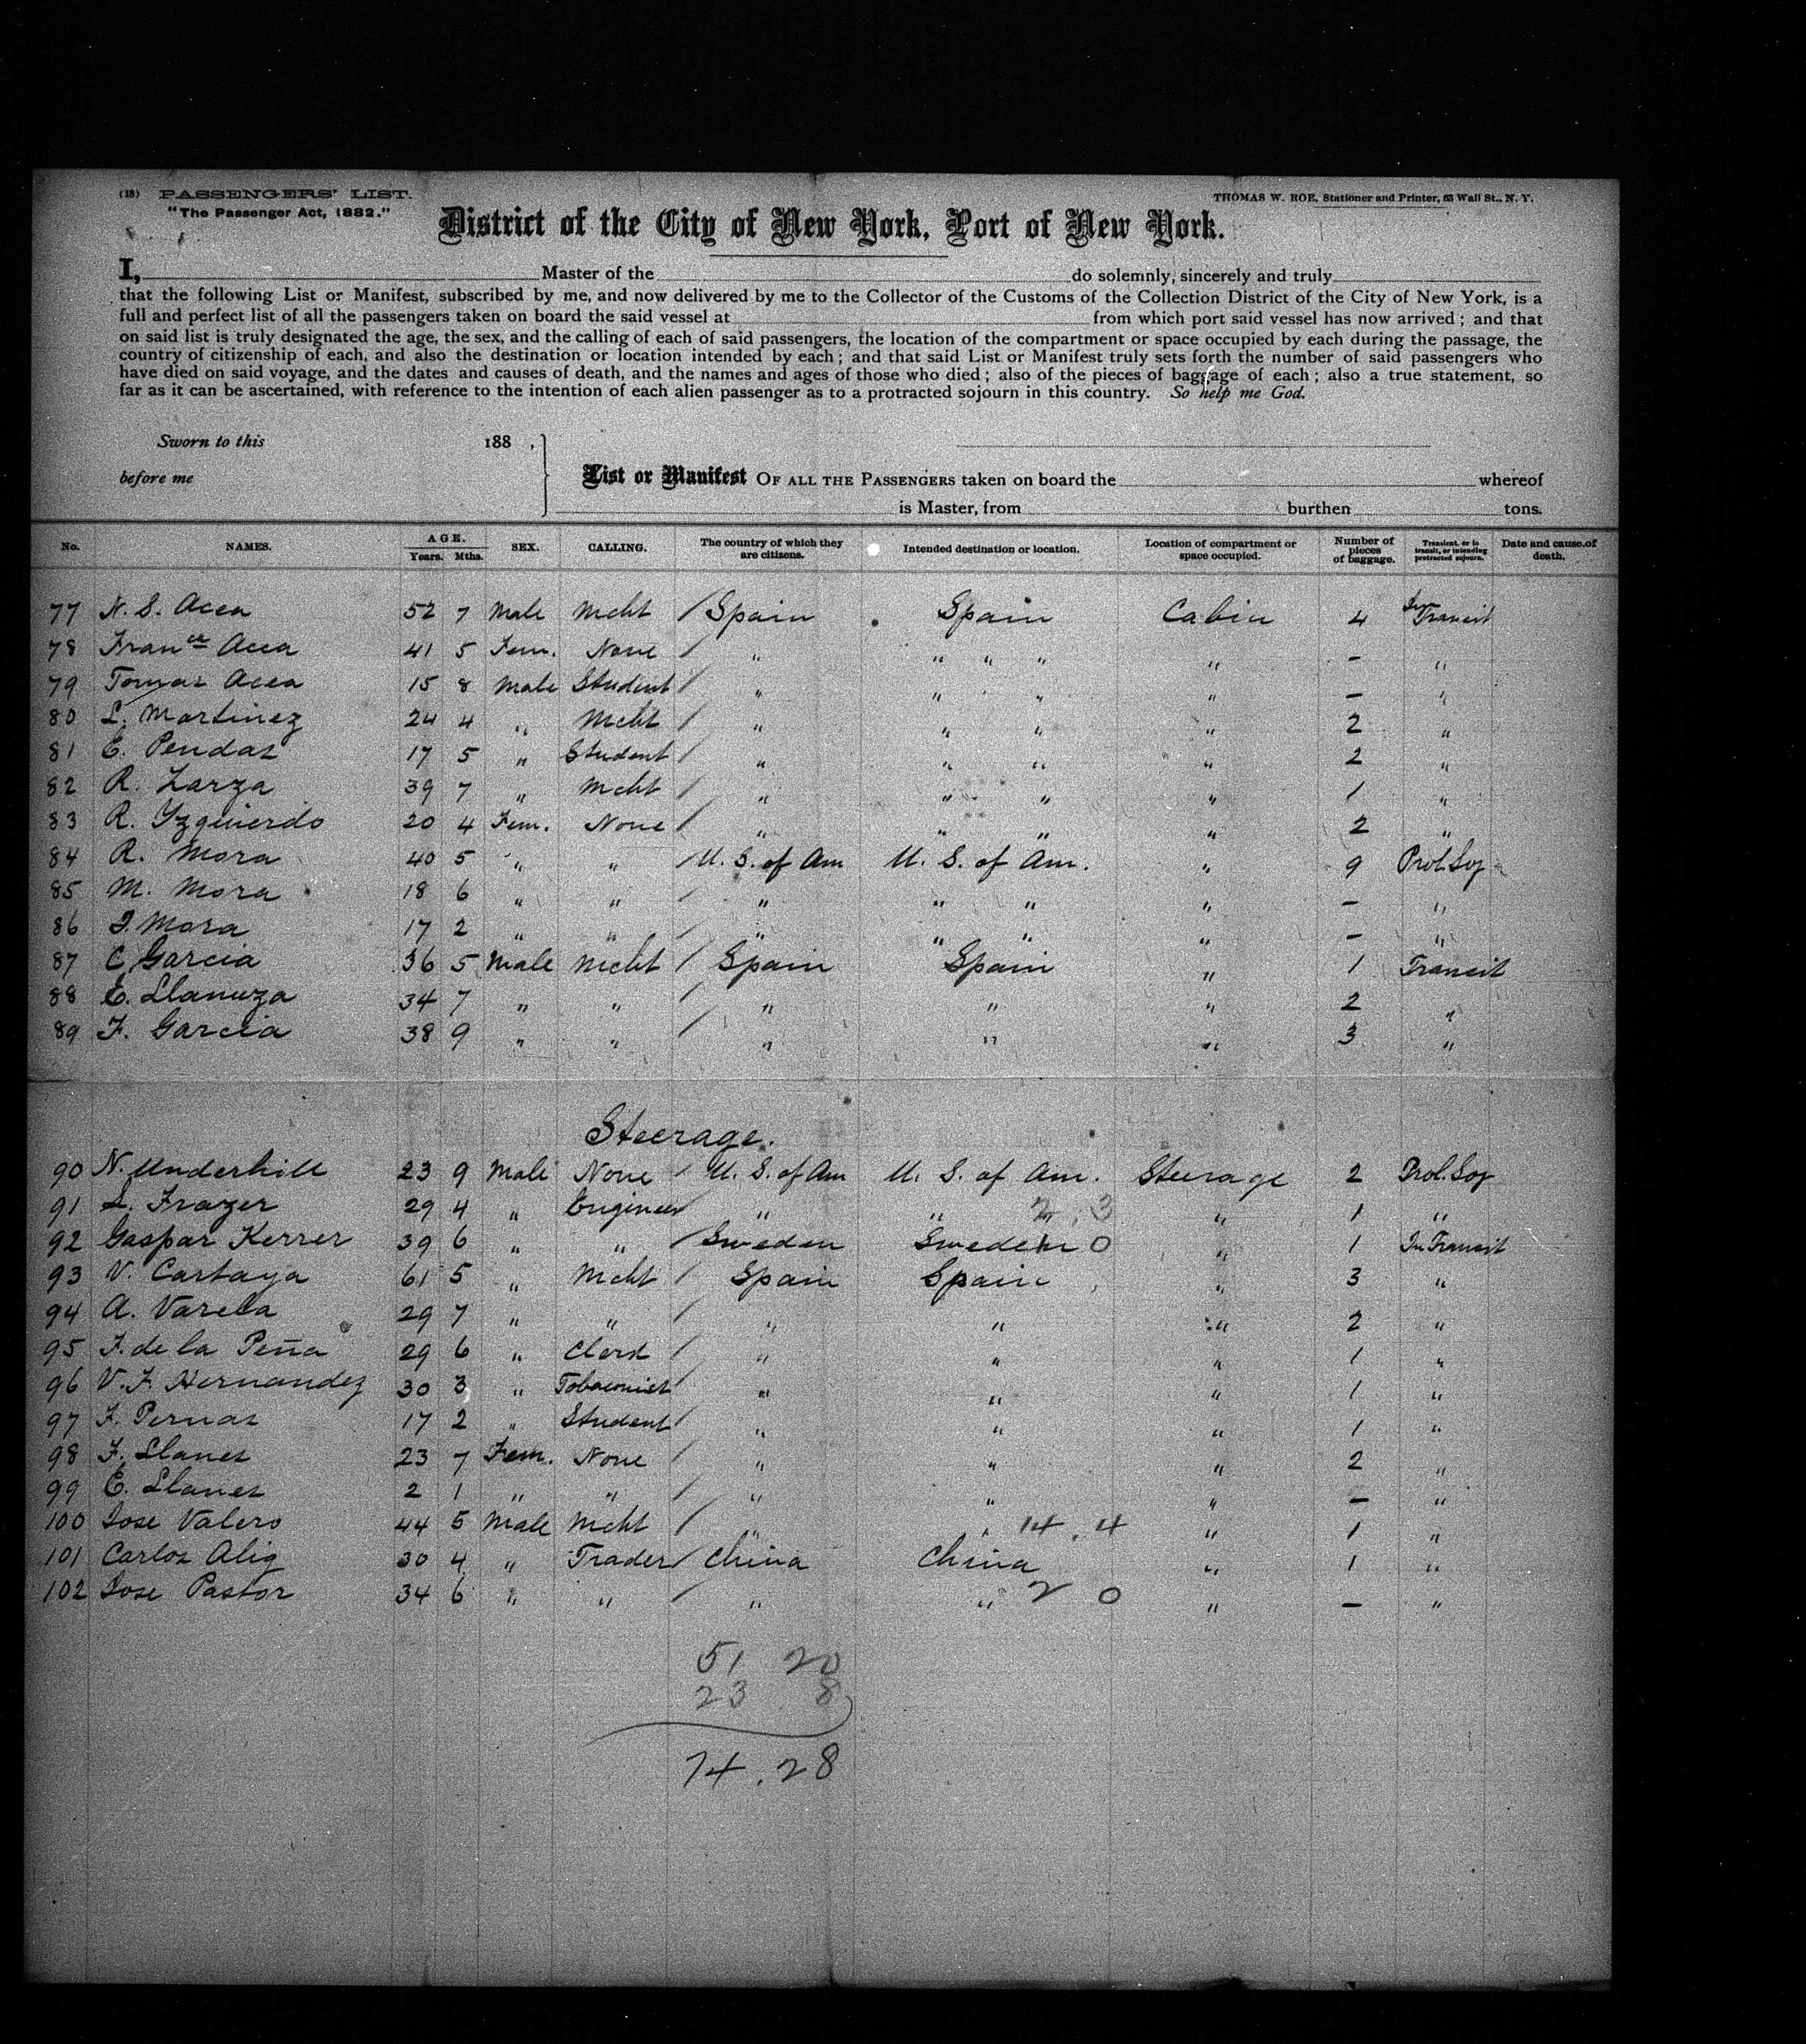 (18) PASSENGERS' LIST.
"The Passenger Act, 1882."
THOMAS W. ROE, Stationer and Printer, 63 Wall St., N. Y.
District of the City of New York, Port of New York.
I, Master of the do solemnly, sincerely and truly
that the following List or Manifest, subscribed by me, and now delivered by me to the Collector of the Customs of the Collection District of the City of New York, is a
full and perfect list of all the passengers taken on board the said vessel at from which port said vessel has now arrived; and that
on said list is truly designated the age, the sex, and the calling of each of said passengers, the location of the compartment or space occupied by each during the passage, the
country of citizenship of each, and also the destination or location intended by each; and that said List or Manifest truly sets forth the number of said passengers who
have died on said voyage, and the dates and causes of death, and the names and ages of those who died; also of the pieces of baggage of each; also a true statement, so
far as it can be ascertained, with reference to the intention of each alien passenger as to a protracted sojourn in this country. So help me God.
Sworn to this 188 ,
before me
List or Manifest OF ALL THE PASSENGERS taken on board the whereof
is Master, from burthen tons.
No. NAMES. AGE. Years. Mths. SEX. CALLING. The country of which they are citizens. Intended destination or location. Location of compartment or space occupied. Number of pieces of baggage. Transient, or in transit, or intending protracted sojourn. Date and cause of death.
77 N. S. Acea 52 7 Male Mcht / Spain Spain Cabin 4 In Transit
78 Franca Acea 41 5 Fem. None / " " " " " - "
79 Tomas Acea 15 8 Male Student / " " " " - "
80 L. Martinez 24 4 " Mcht / " " " " 2 "
81 E. Pendas 17 5 " Student / " " " " 2 "
82 R. Zarza 39 7 " Mcht / " " " " 1 "
83 R. Yzquierdo 20 4 Fem. None / " " " " 2 "
84 R. Mora 40 5 " " / U. S. of Am U. S. of Am. " 9 Prot. Soj
85 M. Mora 18 6 " " / " " " " - "
86 I. Mora 17 2 " " / " " " " - "
87 C. Garcia 36 5 Male Mcht / Spain Spain " 1 Transit
88 E. Llanuza 34 7 " " / " " " 2 "
89 F. Garcia 38 9 " " / " " " 3 "
Steerage.
90 N. Underhill 23 9 Male None / U. S. of Am U. S. of Am. Steerage 2 Prot. Soj
91 L. Frazer 29 4 " Engineer " " 2, 3 " 1 "
92 Gaspar Kerrer 39 6 " " / Sweden Sweden 0 " 1 In Transit
93 V. Cartaya 61 5 " Mcht / Spain Spain " 3 "
94 A. Varela 29 7 " " / " " " 2 "
95 F. de la Peña 29 6 " Clerk / " " " 1 "
96 V. F. Hernandez 30 3 " Tobaconist " " " 1 "
97 F. Pernas 17 2 " Student / " " " 1 "
98 F. Llanes 23 7 Fem. None / " " " 2 "
99 E. Llanes 2 1 " " / " " " - "
100 Jose Valero 44 5 Male Mcht / " " 14. 4 " 1 "
101 Carlos Alig 30 4 " Trader / China China " 1 "
102 Jose Pastor 34 6 " " / " " 2 0 " - "
51 20
23 8
74. 28